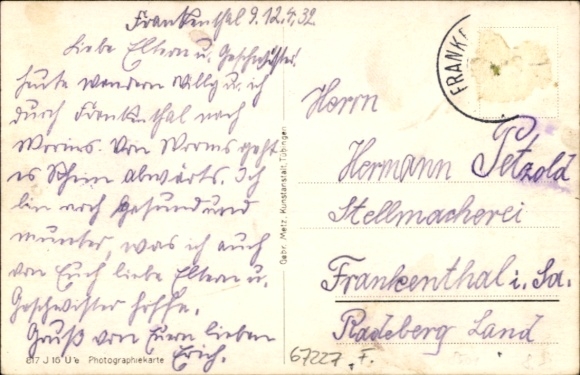 Frankenthal 9.12.4.32
Liebe Eltern u. Geschwister
heute wandern Willy u. ich
durch Frankenthal nach
Worms. Von Worms geht
es Rhein abwärts. Ich
bin noch gesund und
munter, was ich auch
von Euch liebe Eltern u.
Geschwister hoffe.
Gruß von Euern lieben
Erich.
817 J 16 U'e Photographiekarte
Gebr. Metz, Kunstanstalt, Tübingen
FRANKE
Herrn
Hermann Petzold
Stellmacherei
Frankenthal i. Sa.
Radeberg Land
67227 F.